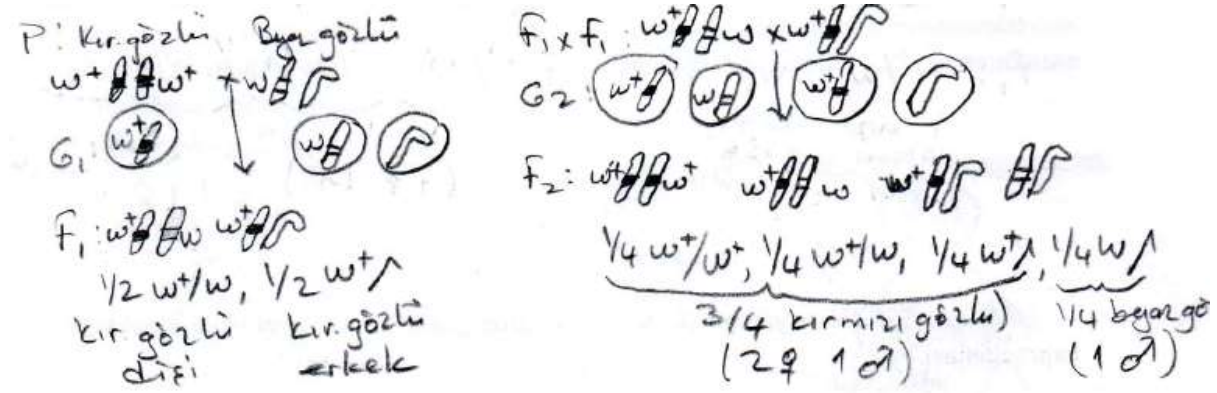 P: Kır.gözlü Beyaz gözlü
w+ w+ x w
G1 w+ w
F1: w+ w w+
1/2 w+/w, 1/2 w+
kır.gözlü kır.gözlü
dişi erkek
F1 x F1: w+ w x w+
G2: w+ w w+
F2: w+ w+ w+ w w+
1/4 w+/w+, 1/4 w+/w, 1/4 w+, 1/4 w
3/4 kırmızı gözlü) 1/4 beyaz gö
(2♀ 1♂) (1♂)